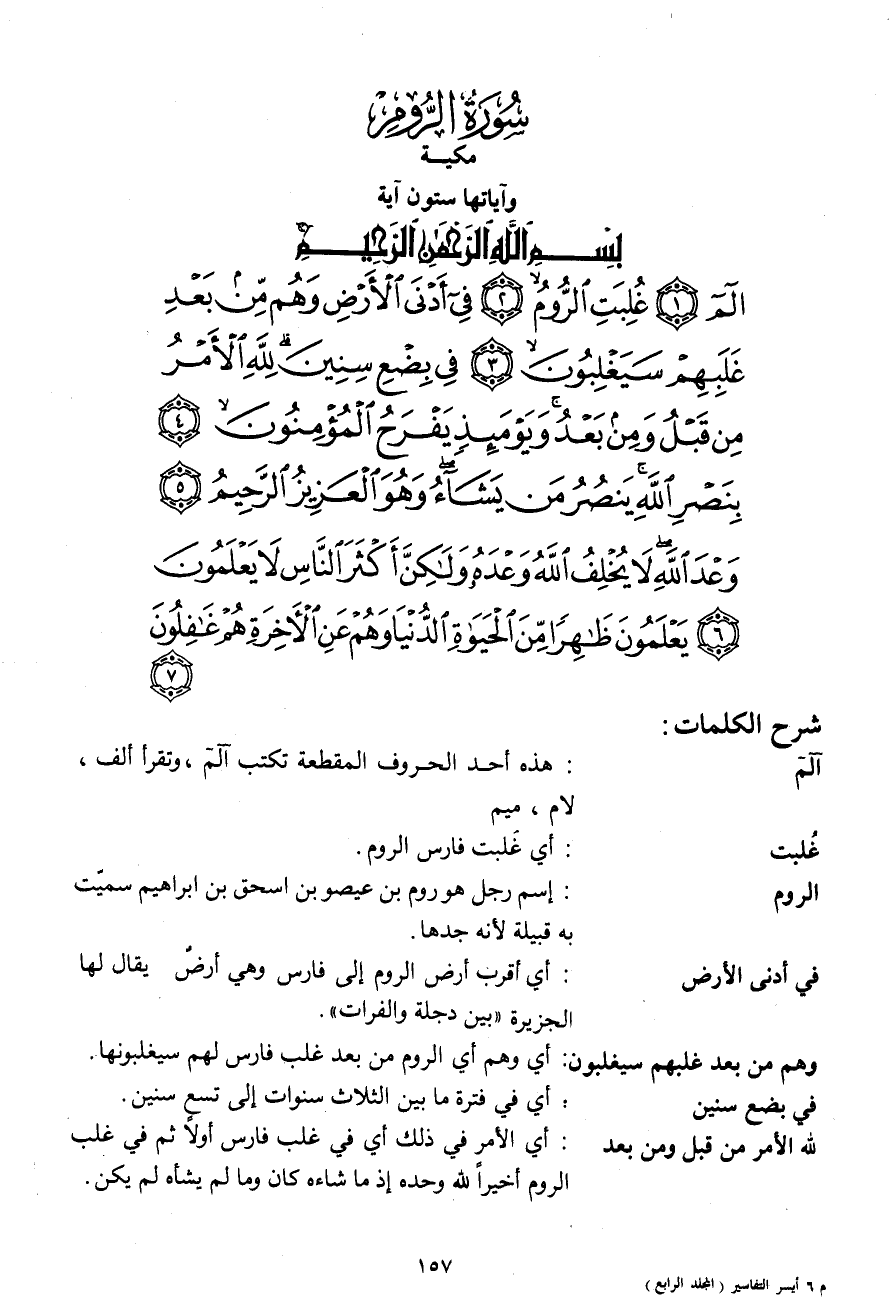 سُورَةُ الرُّومِ
مكيــة
وآياتها ستون آية
بِسْمِ اللَّهِ الرَّحْمَٰنِ الرَّحِيمِ
الٓمٓ ﴿١﴾ غُلِبَتِ ٱلرُّومُ ۙ ﴿٢﴾ فِىٓ أَدْنَى ٱلْأَرْضِ وَهُم مِّنۢ بَعْدِ
غَلَبِهِمْ سَيَغْلِبُونَ ۙ ﴿٣﴾ فِى بِضْعِ سِنِينَ ۗ لِلَّهِ ٱلْأَمْرُ
مِن قَبْلُ وَمِنۢ بَعْدُ ۚ وَيَوْمَئِذٍ يَفْرَحُ ٱلْمُؤْمِنُونَ ۙ ﴿٤﴾
بِنَصْرِ ٱللَّهِ ۚ يَنصُرُ مَن يَشَآءُ ۖ وَهُوَ ٱلْعَزِيزُ ٱلرَّحِيمُ ﴿٥﴾
وَعْدَ ٱللَّهِ ۖ لَا يُخْلِفُ ٱللَّهُ وَعْدَهُۥ وَلَٰكِنَّ أَكْثَرَ ٱلنَّاسِ لَا يَعْلَمُونَ
﴿٦﴾ يَعْلَمُونَ ظَٰهِرًا مِّنَ ٱلْحَيَوٰةِ ٱلدُّنْيَا وَهُمْ عَنِ ٱلْءَاخِرَةِ هُمْ غَٰفِلُونَ
﴿٧﴾
شرح الكلمات :
آلٓمٓ : هذه أحـد الحـروف المقطعة تكتب آلٓمٓ ، وتقرأ ألف ،
لام ، ميم
غُلبت : أي غَلبت فارس الروم .
الروم : إسم رجل هو روم بن عيصو بن اسحق بن ابراهيم سميّت
به قبيلة لأنه جدها.
في أدنى الأرض : أي أقرب أرض الروم إلى فارس وهي أرضٌ يقال لها
الجزيرة «بين دجلة والفرات» .
وهم من بعد غلبهم سيغلبون: أي وهم أي الروم من بعد غلب فارس لهم سيغلبونها.
في بضع سنين : أي في فترة ما بين الثلاث سنوات إلى تسع سنين .
لله الأمر من قبل ومن بعد : أي الأمر في ذلك أي في غلب فارس أولاً ثم في غلب
الروم أخيراً لله وحده إذ ما شاءه كان وما لم يشأه لم يكن .
١٥٧
م ٦ أيسر التفاسير ( المجلد الرابع )